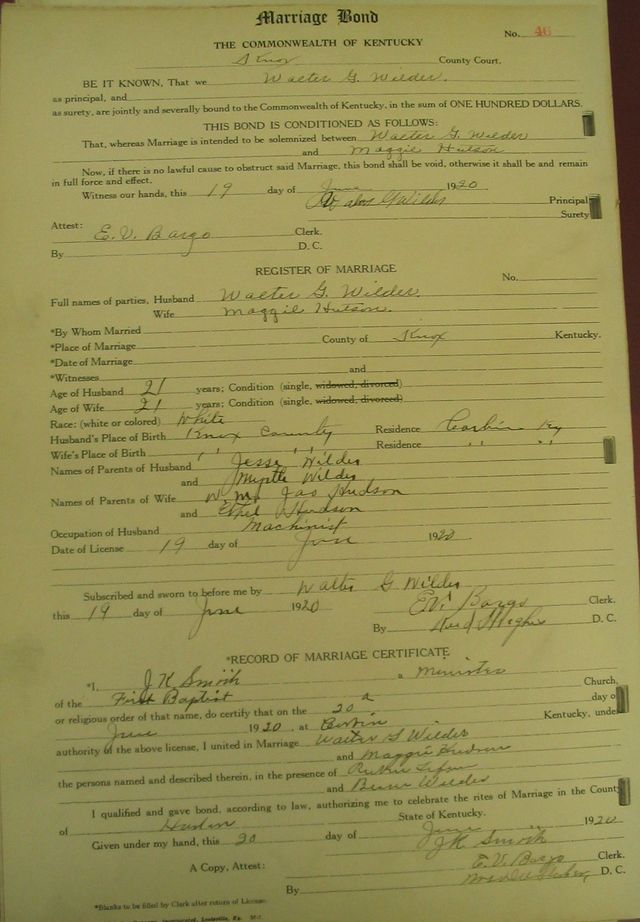 Marriage Bond
No. 46
THE COMMONWEALTH OF KENTUCKY
Knox County Court.
BE IT KNOWN, That we Walter G. Wilder.
as principal, and
as surety, are jointly and severally bound to the Commonwealth of Kentucky, in the sum of ONE HUNDRED DOLLARS.
THIS BOND IS CONDITIONED AS FOLLOWS:
That, whereas Marriage is intended to be solemnized between Walter G. Wilder
and Maggie Hutson
Now, if there is no lawful cause to obstruct said Marriage, this bond shall be void, otherwise it shall be and remain
in full force and effect.
Witness our hands, this 19 day of June 1920
Walter G Wilder Principal
Surety
Attest: E. V. Bargo Clerk.
By D. C.
REGISTER OF MARRIAGE
No.
Full names of parties, Husband Walter G. Wilder.
Wife Maggie Hutson.
*By Whom Married
*Place of Marriage County of Knox Kentucky.
*Date of Marriage
*Witnesses and
Age of Husband 21 years; Condition (single, widowed, divorced)
Age of Wife 21 years; Condition (single, widowed, divorced)
Race: (white or colored) White
Husband's Place of Birth Knox County Residence Corbin Ky
Wife's Place of Birth " " Residence " "
Names of Parents of Husband Jesse Wilder
and Myrtle Wilder
Names of Parents of Wife Wm. Jas Hudson
and Ethel Hudson
Occupation of Husband Machinist
Date of License 19 day of June 1920
Subscribed and sworn to before me by Walter G Wilder
this 19 day of June 1920 E.V. Bargo Clerk.
By D. C.
*RECORD OF MARRIAGE CERTIFICATE
*I, J K Smith a Minister
of the First Baptist Church,
or religious order of that name, do certify that on the 20 day of
June 1920, at Corbin Kentucky, under
authority of the above license, I united in Marriage Walter G Wilder
and Maggie Hudson
the persons named and described therein, in the presence of
and Wilder
I qualified and gave bond, according to law, authorizing me to celebrate the rites of Marriage in the County
of Harlan State of Kentucky.
Given under my hand, this 20 day of June 1920
J K Smith
A Copy, Attest: E. V. Bargo Clerk.
By D. C.
*Blanks to be filled by Clerk after return of License.